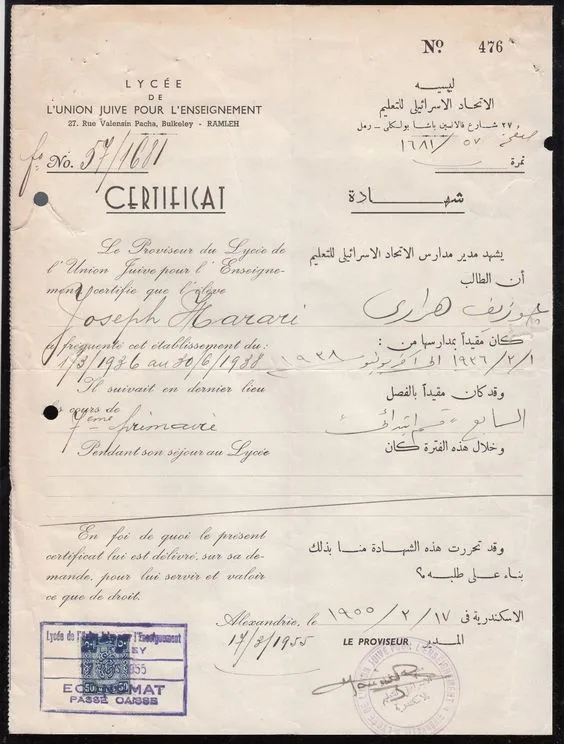 Nº 476
LYCÉE
DE
L'UNION JUIVE POUR L'ENSEIGNEMENT
27. Rue Valensin Pacha, Bulkeley - RAMLEH
No. 57/1681
CERTIFICAT
Le Proviseur du Lycée de
l'Union Juive pour l'Enseigne-
ment certifie que l'élève
Joseph Harari
a fréquenté cet établissement du:
1/3/1936 au 30/6/1938
Il suivait en dernier lieu
les cours de
7ème primaire
Pendant son séjour au Lycée
En foi de quoi le présent
certificat lui est délivré, sur sa de-
mande, pour lui servir et valoir
ce que de droit.
ليسيه
الاتحاد الاسرائيلى للتعليم
٢٧ شارع فالانسين باشا بولكلى - رمل
٥٧ / ١٦٨١
نمرة
شهادة
يشهد مدير مدارس الاتحاد الاسرائيلى للتعليم
أن الطالب
جوزيف هرارى
كان مقيداً بمدارسها من :
١٩٣٦/٢/١ الى آخر يونيو ١٩٣٨
وقد كان مقيداً بالفصل
السابع قسم ابتدائى
وخلال هذه الفترة كان
وقد تحررت هذه الشهادة منا بذلك
بناء على طلبه ؟
الاسكندرية فى ١٧ / ٢ / ١٩٥٥
Alexandrie, le
17/2/1955
LE PROVISEUR المدير
Lycée de l'Union Juive pour l'Enseignement
ECONOMAT
PASSÉ CAISSE